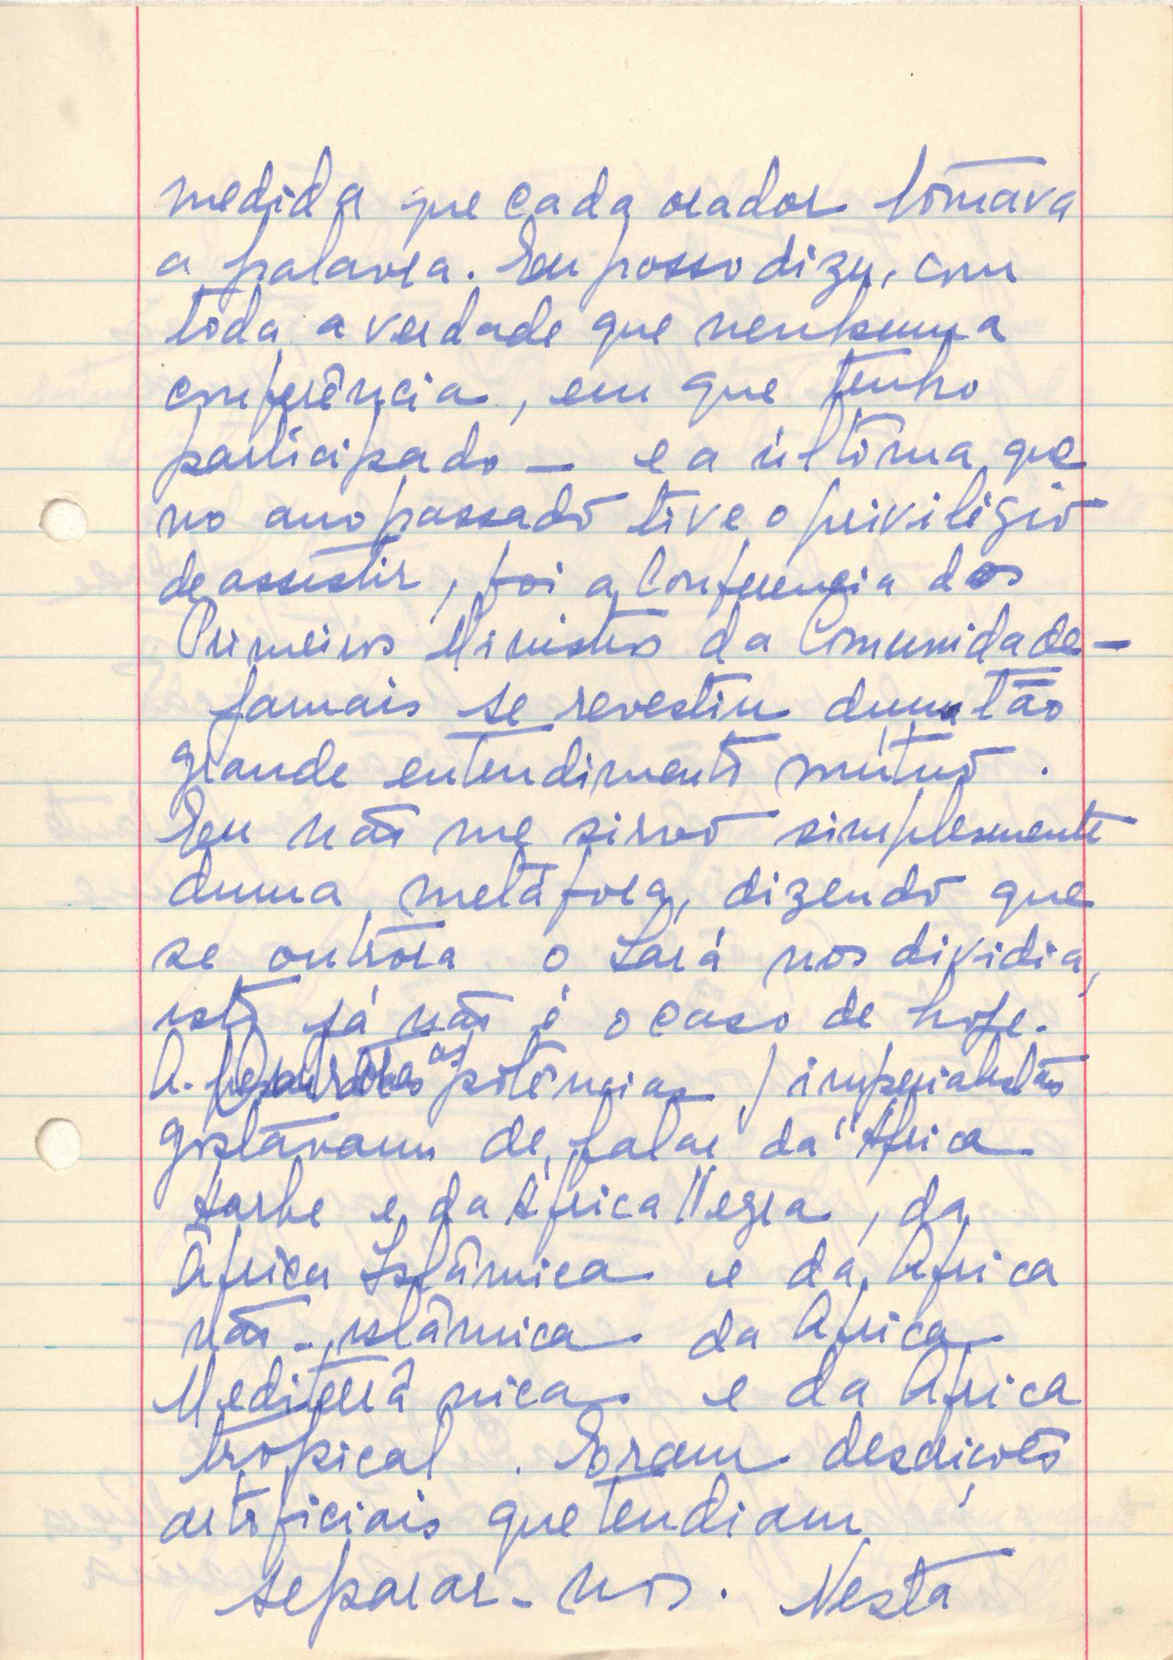 medida que cada orador tomava
a palavra. Eu posso dizer, com
toda a verdade que nenhuma
conferência, em que tenho
participado — e a última que
no ano passado tive o privilégio
de assistir, foi a Conferencia dos
Primeiros Ministros da Comunidade —
jamais se revestiu duma tão
grande entendimento mútuo.
Eu não me sirvo simplesmente
duma metáfora, dizendo que
se outrora o Sará nos dividia,
isto já não é o caso de hoje.
as potências imperialistas
gostavam de falar da "África
Aarbe e da África Negra, da
África Islâmica e da África
não-islâmica da Africa
Mediterrânica e da Africa
tropical. Eram
artificiais que tendiam
separar-nos. Nesta